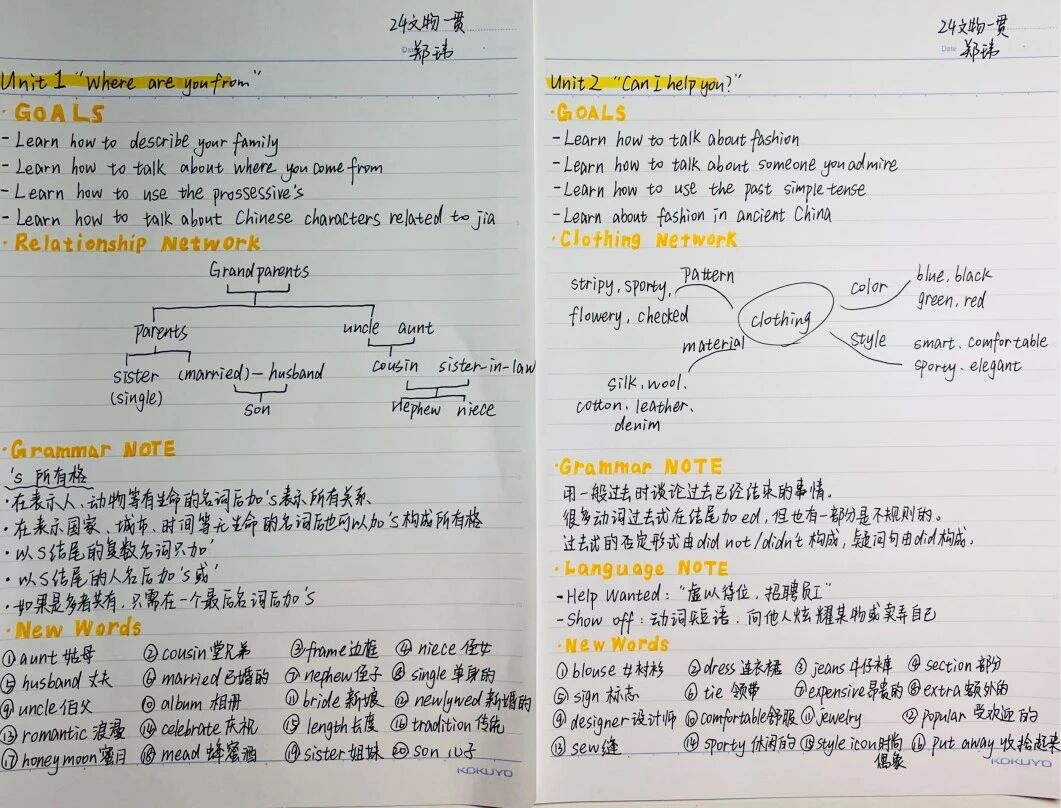 24文物一贯
Date
郑玮
Unit 1 "Where are you from"
·GOALS
- Learn how to describe your family
- Learn how to talk about where you come from
- Learn how to use the prossessive's
- Learn how to talk about Chinese characters related to jia
·Relationship Network
Grandparents
parents uncle aunt
sister (married) - husband cousin sister-in-law
(single) son nephew niece
·Grammar NOTE
's 所有格
·在表示人、动物等有生命的名词后加's表示所有关系.
·在表示国家、城市、时间等无生命的名词后也可以加's构成所有格
·以S结尾的复数名词只加'
·以S结尾的人名后加's或'
·如果是多者共有,只需在一个最后名词后加's
·New Words
①aunt 姑母 ②cousin 堂兄弟 ③frame 边框 ④niece 侄女
⑤husband 丈夫 ⑥married 已婚的 ⑦nephew 侄子 ⑧single 单身的
⑨uncle 伯父 ⑩album 相册 ⑪bride 新娘 ⑫newlywed 新婚的
⑬romantic 浪漫 ⑭celebrate 庆祝 ⑮length 长度 ⑯tradition 传统
⑰honeymoon 蜜月 ⑱mead 蜂蜜酒 ⑲sister 姐妹 ⑳son 儿子
KOKUYO
24文物一贯
Date
郑玮
Unit 2 "Can I help you?"
·GOALS
- Learn how to talk about fashion
- Learn how to talk about someone you admire
- Learn how to use the past simple tense
- Learn about fashion in ancient China
·Clothing Network
clothing
pattern
stripy, sporty,
flowery, checked
color
blue, black
green, red
material
silk, wool.
cotton. leather.
denim
style
smart. comfortable
sporty. elegant
·Grammar NOTE
用一般过去时谈论过去已经结束的事情。
很多动词过去式在结尾加ed,但也有一部分是不规则的。
过去式的否定形式由did not/didn't构成,疑问句由did构成.
·Language NOTE
- Help Wanted: "虚以待位,招聘员工"
- Show off: 动词短语.向他人炫耀某物或卖弄自己
·New Words
①blouse 女衬衫 ②dress 连衣裙 ③jeans 牛仔裤 ④section 部分
⑤sign 标志 ⑥tie 领带 ⑦expensive 昂贵的 ⑧extra 额外的
⑨designer 设计师 ⑩comfortable 舒服 ⑪jewelry ⑫popular 受欢迎的
⑬sew 缝 ⑭sporty 休闲的 ⑮style icon 时尚偶象 ⑯put away 收拾起来
KOKUYO